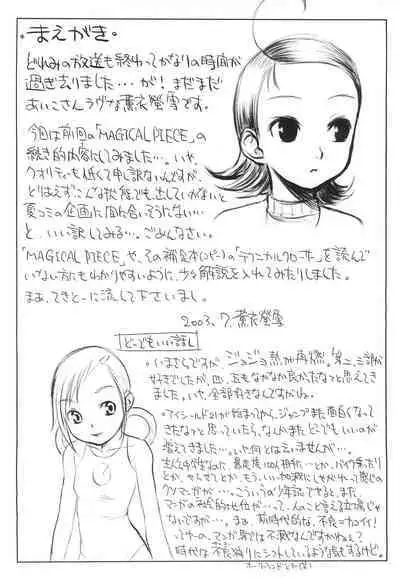 。まえがき。
どれみの放送も終わってかなりの時間が
過ぎ去りました…が!まだまだ
あいこさんラヴな薫衣螢雪です。
今回は前回の「MAGICAL PIECE」の
続き的内容にしてみました…。いや、
クオリティーも低くて申し訳ないんですが、
とりあえずこんな状態でも出していかないと
夏コミの企画に間に合いそうにない…
と、いい訳してみる…。ごめんなさい。
「MAGICAL PIECE」や、その補足本(コピー)の「テクニカルクローサー」を読んで
いない方にもわかりやすいように、少々解説を入れてみたりしました。
まあ、てきとーに流して下さいまし。
2003.7.薫衣螢雪
どーでもいい話し
・いまさらですがジョジョ熱が再燃。第二、三部が
好きでしたが、四、五もなかなか良かったなっと思えてき
ました。いや、全部好きなんですがね。
・アイシールド21が始まってから、ジャンプまた面白くなって
きたなっと思っていたら、なんかまたどーでもいいのが
増えてきました…。いや、何とは言いませんが…。
とか、もう、いい加減にしやがれって感じの
クソマンガが…。こういうのが少年誌で出ると、また、
マンガの社会的地位が…って、人のこと言える立場じゃ
ないですが…。まあ、前時代的な、不良=カッコイイ!
時代は不良狩りにシフトしているような気もするけど。